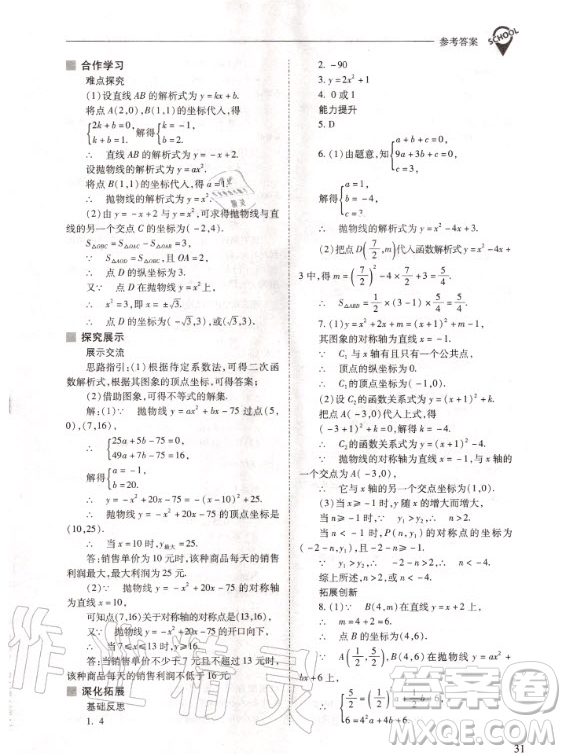 参考答案
SCHOOL
合作学习
难点探究
(1)设直线 AB 的解析式为 y=kx+b.
将点 A(2,0),B(1,1)的坐标代入,得
{2k+b=0, k+b=1. 解得{k=-1, b=2.
∴ 直线 AB 的解析式为 y=-x+2.
设抛物线的解析式为 y=ax².
将点 B(1,1)的坐标代入,得 a=1.
∴ 抛物线的解析式为 y=x².
(2)由 y=-x+2 与 y=x²,可求得抛物线与直
线的另一个交点 C 的坐标为(-2,4).
S△OBC=S△OAC-S△OAB=3.
∵ S△AOD=S△OBC,且 OA=2,
∴ 点 D 的纵坐标为 3.
又∵ 点 D 在抛物线 y=x²上,
∴ x²=3,即 x=±√3.
∴ 点 D 的坐标为(-√3,3)或(√3,3).
探究展示
展示交流
思路指引:(1)根据待定系数法,可得二次函
数解析式,根据其图象的顶点坐标,可得答案;
(2)借助图象,可得不等式的解集.
解:(1)∵ 抛物线 y=ax²+bx-75 过点(5,
0),(7,16),
∴ {25a+5b-75=0, 49a+7b-75=16.
解得{a=-1, b=20.
∵ y=-x²+20x-75=-(x-10)²+25,
∴ 抛物线 y=-x²+20x-75 的顶点坐标是
(10,25).
∴ 当 x=10 时,y最大=25.
答:销售单价为 10 元时,该种商品每天的销售
利润最大,最大利润为 25 元.
(2)∵ 抛物线 y=-x²+20x-75 的对称轴
为直线 x=10,
可知点(7,16)关于对称轴的对称点是(13,16),
又∵ 抛物线 y=-x²+20x-75 开口向下,
∴ 当 7≤x≤13 时,y≥16.
答:销售单价不少于 7 元且不超过 13 元时,
该种商品每天的销售利润不低于 16 元.
深化拓展
基础反思
1. 4
2. -90
3. y=2x²+1
4. 0 或 1
能力提升
5. D
6. (1)由题意,知{a+b+c=0, 9a+3b+c=0, c=3.
解得{a=1, b=-4, c=3.
∴ 抛物线的解析式为 y=x²-4x+3.
(2)把点 D(7/2,m)代入函数解析式 y=x²-4x+
3 中,得 m=(7/2)²-4×7/2+3=5/4.
∴ S△ABD=1/2×(3-1)×5/4=5/4.
7. (1)∵ y=ax²+2ax+a-1=a(x+1)²-1,
其图象的对称轴为直线 x=-1.
∵ C₁ 与 x 轴有且只有一个公共点,
∴ 顶点的纵坐标为 0.
∴ C₁ 的顶点坐标为(-1,0).
(2)设 C₂ 的函数关系式为 y=(x+1)²+k.
把点 A(-3,0)代入上式,得
(-3+1)²+k=0,得 k=-4.
∴ C₂ 的函数关系式为 y=(x+1)²-4.
∵ 抛物线的对称轴为直线 x=-1,与 x 轴的
一个交点为 A(-3,0),
∴ 它与 x 轴的另一个交点坐标为(1,0).
(3)当 x≥-1 时,y 随 x 的增大而增大,
当 n≥-1 时,∵ y₁>y₂,∴ n>2.
当 n<-1 时,P(n,y₁)的对称点的坐标为
(-2-n,y₁),且-2-n>-1.
∵ y₁>y₂,∴ -2-n>2.∴ n<-4.
综上所述,n>2 或 n<-4.
拓展创新
8. (1)∵ B(4,m)在直线 y=x+2 上,
∴ m=4+2=6.
∴ 点 B 的坐标为(4,6).
31